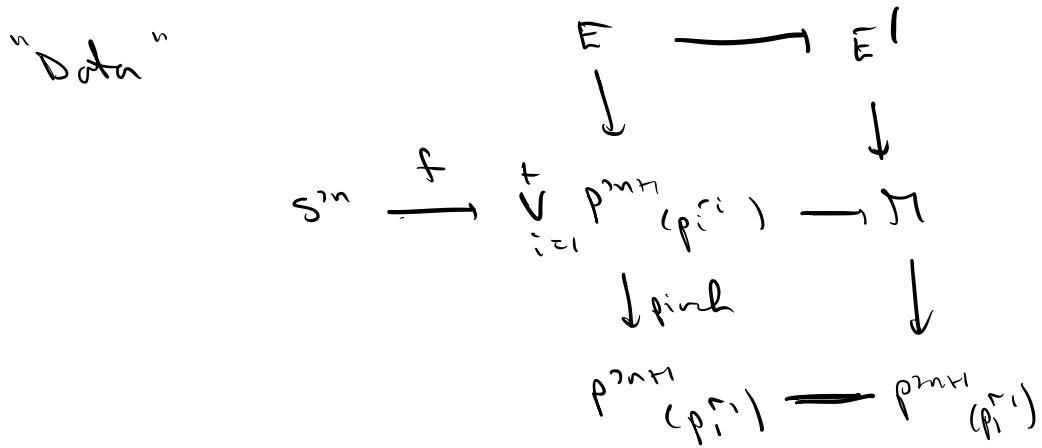 "Data"
E → E'
↓ ↓
S²ⁿ —f→ ⋁ᵗᵢ₌₁ P²ⁿ⁺¹(pᵢ^{rᵢ}) → M
↓ pinch ↓
P²ⁿ⁺¹(p₁^{r₁}) = P²ⁿ⁺¹(p₁^{r₁})